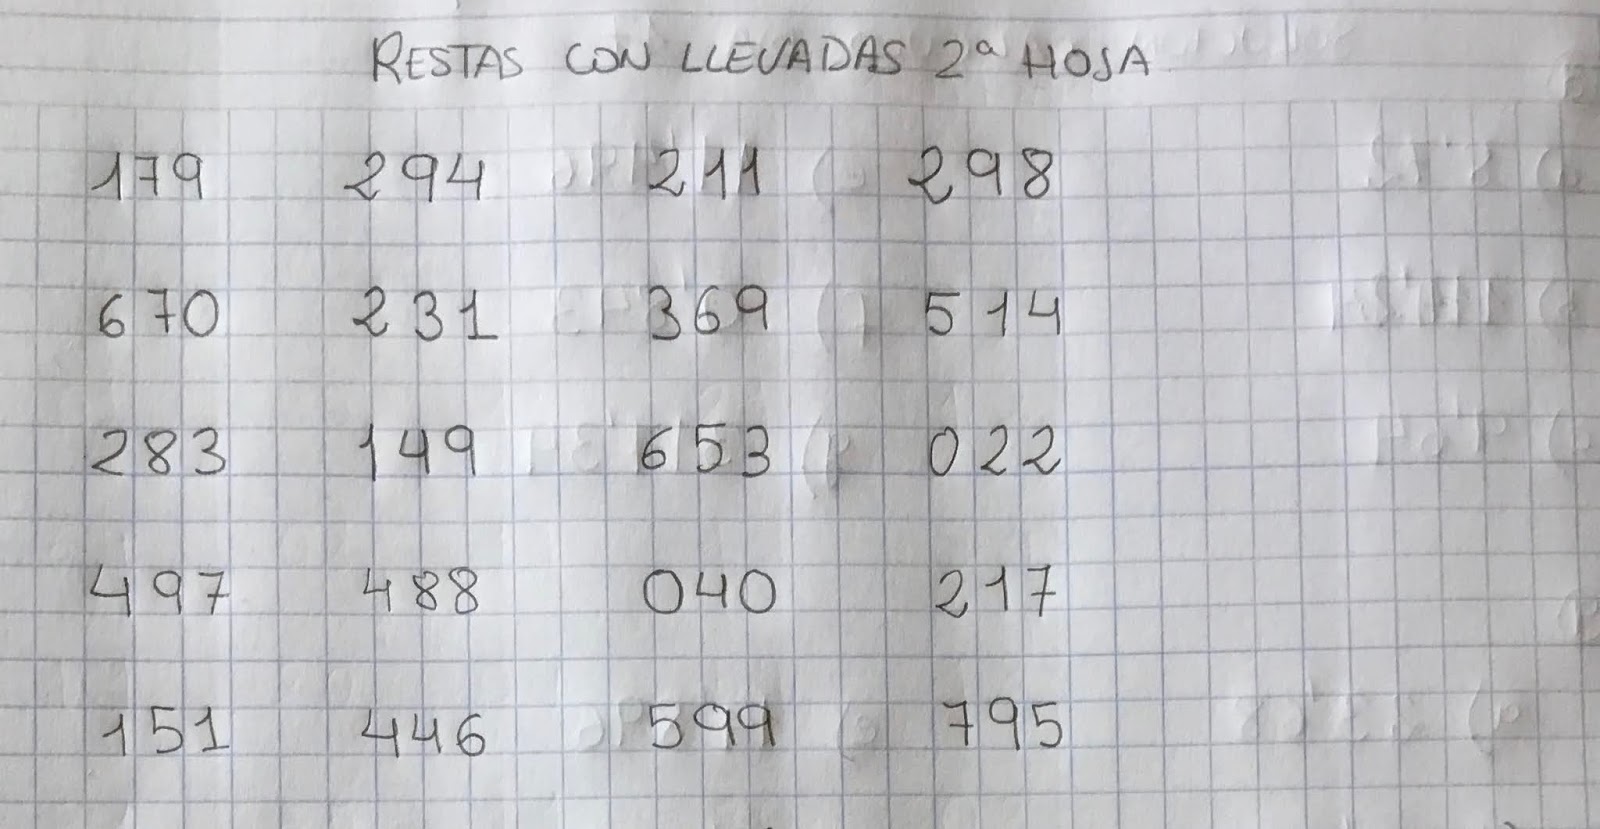 RESTAS CON LLEVADAS 2ª HOJA
179 294 211 298
670 231 369 514
283 149 653 022
497 488 040 217
151 446 599 795